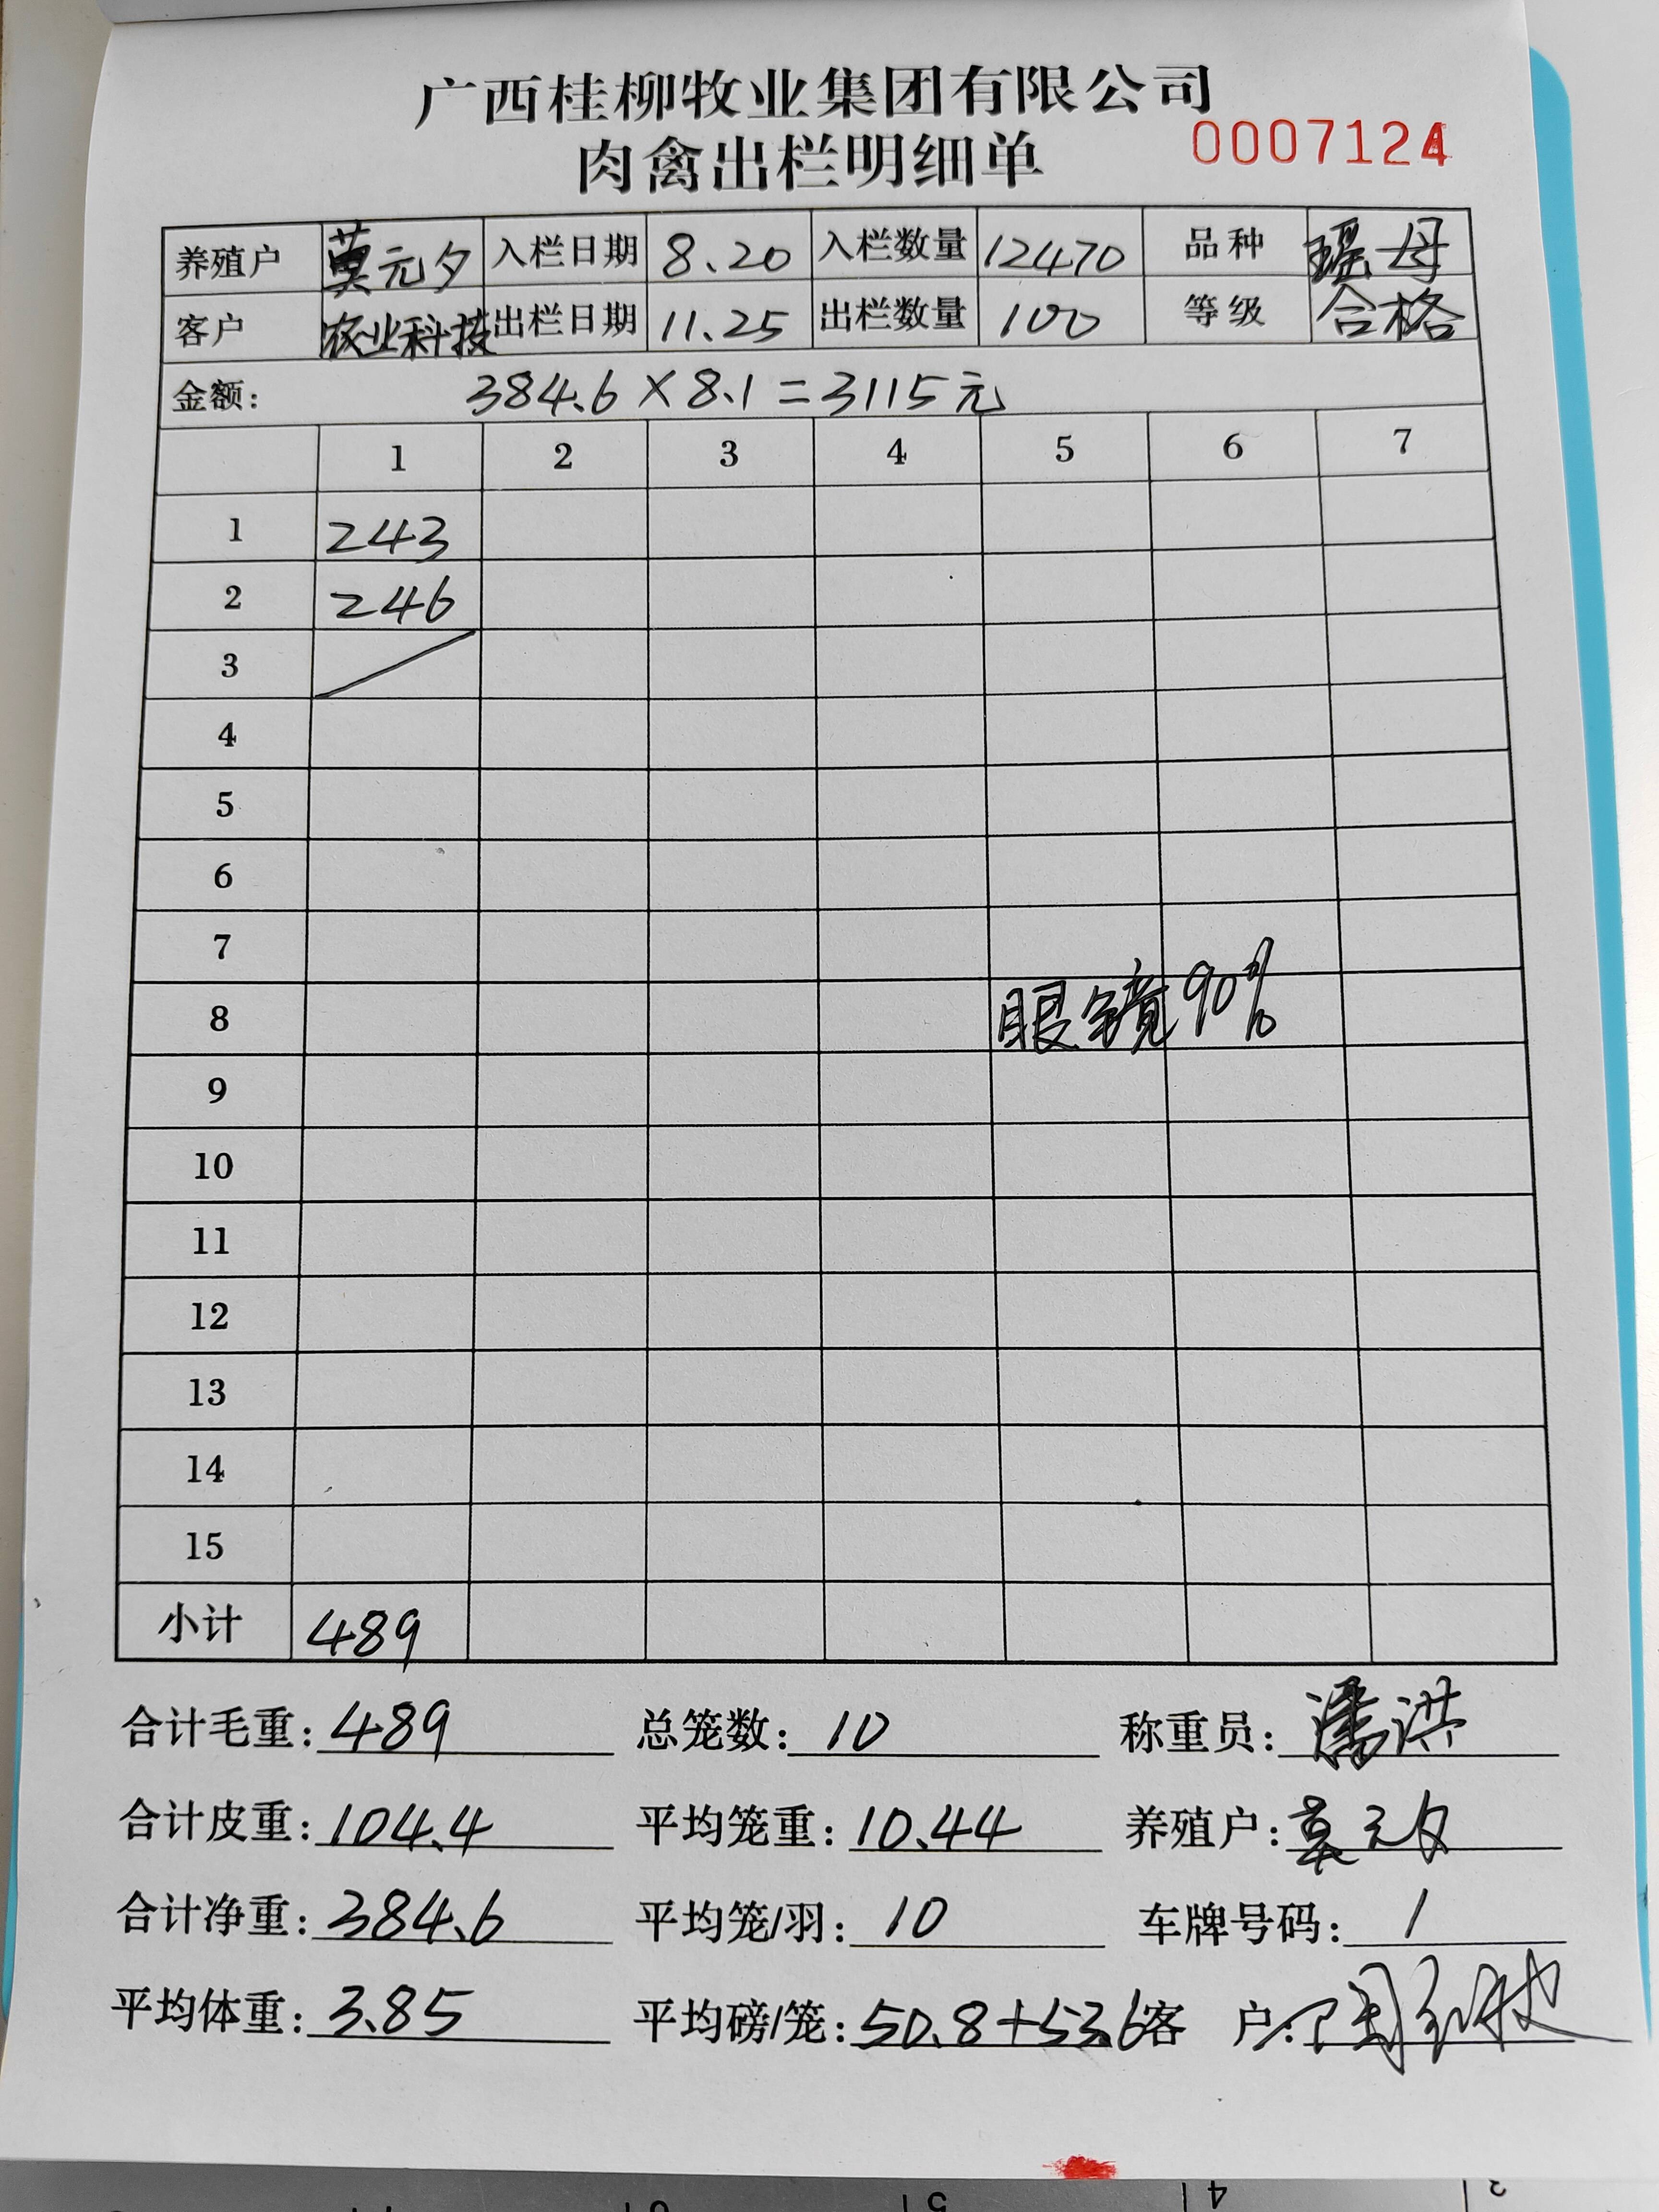 广西桂柳牧业集团有限公司
肉禽出栏明细单 0007124
养殖户 莫元夕 入栏日期 8.20 入栏数量 12470 品种 瑶母
客户 农业科技 出栏日期 11.25 出栏数量 100 等级 合格
金额: 384.6×8.1=3115元
1 2 3 4 5 6 7
1 243
2 246
3
4
5
6
7
8 眼镜90%
9
10
11
12
13
14
15
小计 489
合计毛重: 489 总笼数: 10 称重员: 潘洪
合计皮重: 104.4 平均笼重: 10.44 养殖户: 莫元夕
合计净重: 384.6 平均笼/羽: 10 车牌号码: /
平均体重: 3.85 平均磅/笼: 50.8+53.6 客户:
51 41